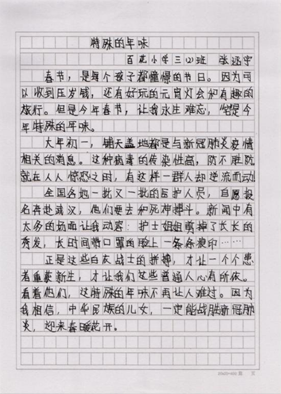 特殊的年味
百花小学三(2)班 张
春节，是每个孩子都憧憬的节日。因为可
以收到压岁钱，还有好玩的元宵灯会和有趣的
旅行。但是今年春节，让我永生难忘，
年特殊的年味。
大年初一，铺天盖地都是与新冠肺炎疫情
相关的消息。这种病毒的传染性高，防不胜防
就在人人惊恐之时，有这样一群人却逆流而动
全国各地一批又一批的医护人员，自愿报
名奔赴武汉，他们要去和死神搏斗。新闻中有
太多的场面让我动容：护士姐姐剪掉了长长的
秀发，长时间戴口罩而脸上一条条痕印……
正是这些白衣战士的拼搏，才让一个个患
者重获新生，才让我们这些普通人心有所依。
看着他们，这特殊的年味不再让人难过。因为
我相信，中华民族的儿女，一定能战胜新冠肺
炎，迎来春暖花开。